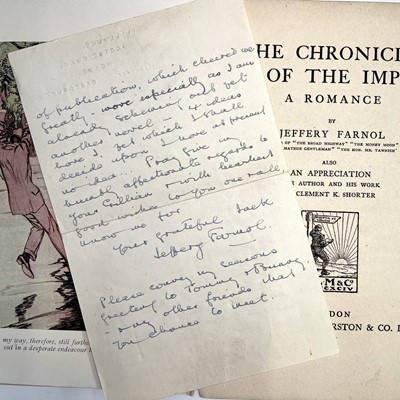 of publication, which cheered me
greatly - more especially as I am
already scheming out yet
another novel - 4 ideas
have I, yet which I shall
decide upon I have at present
no idea... Pray give my
humbly affectionate regards to
your Gillian & with heartiest
good wishes to you one & all
know me for
Your grateful Jack
Jeffery Farnol.
Please convey my seasons
greeting to Tommy &
& any other friends that
you chance to meet.
my way, therefore, still furth
out in a desperate endeavour t
HE CHRONICL
OF THE IMP
A ROMANCE
BY
JEFFERY FARNOL
OF "THE BROAD HIGHWAY" "THE MONEY MOON"
MATEUR GENTLEMAN" "THE HON. MR. TAWNISH"
ALSO
AN APPRECIATION
E AUTHOR AND HIS WORK
CLEMENT K. SHORTER
M & Co
XCIV
DON
RSTON & CO. L